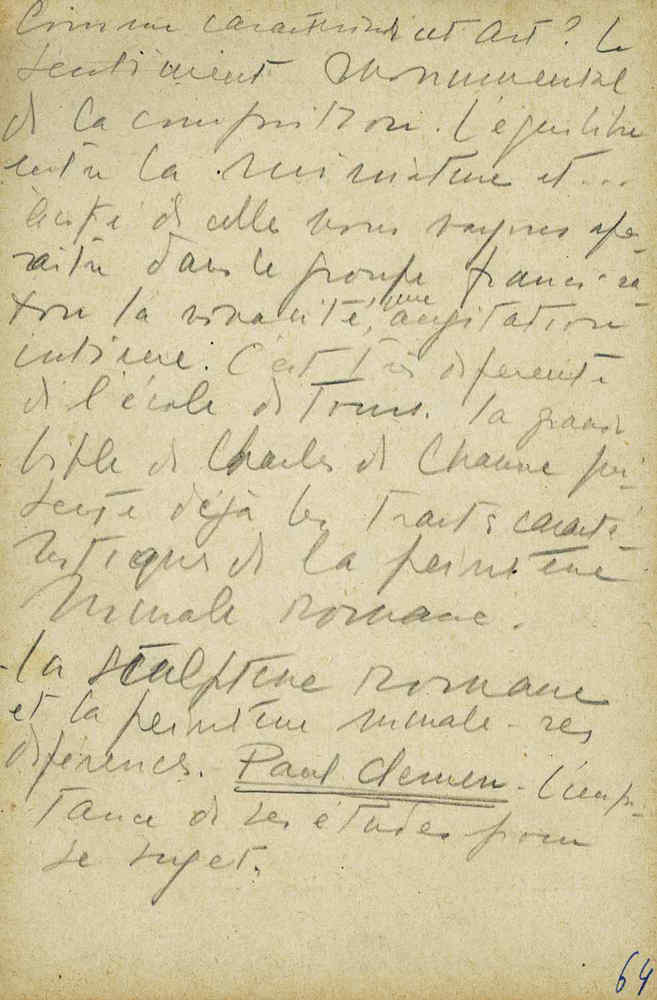 Comme caractériser cet art? Le
sentiment monumental
de la composition. L'équilibre
entre la miniature et ...
de celle nous voyons apa-
raitre dans le groupe franco-sa-
xon la vivacité, une agitation
intime. C'est très diferente
de l'école de Tours. la grande
bible de Charles de Chauve pré-
sente déjà les traits caracté-
ristiques de la peinture
murale romane.
- la sculpture romane
et la peinture murale - ses
diferences. Paul Clemen - L'impor-
tance de ses études pour
se suget.
64